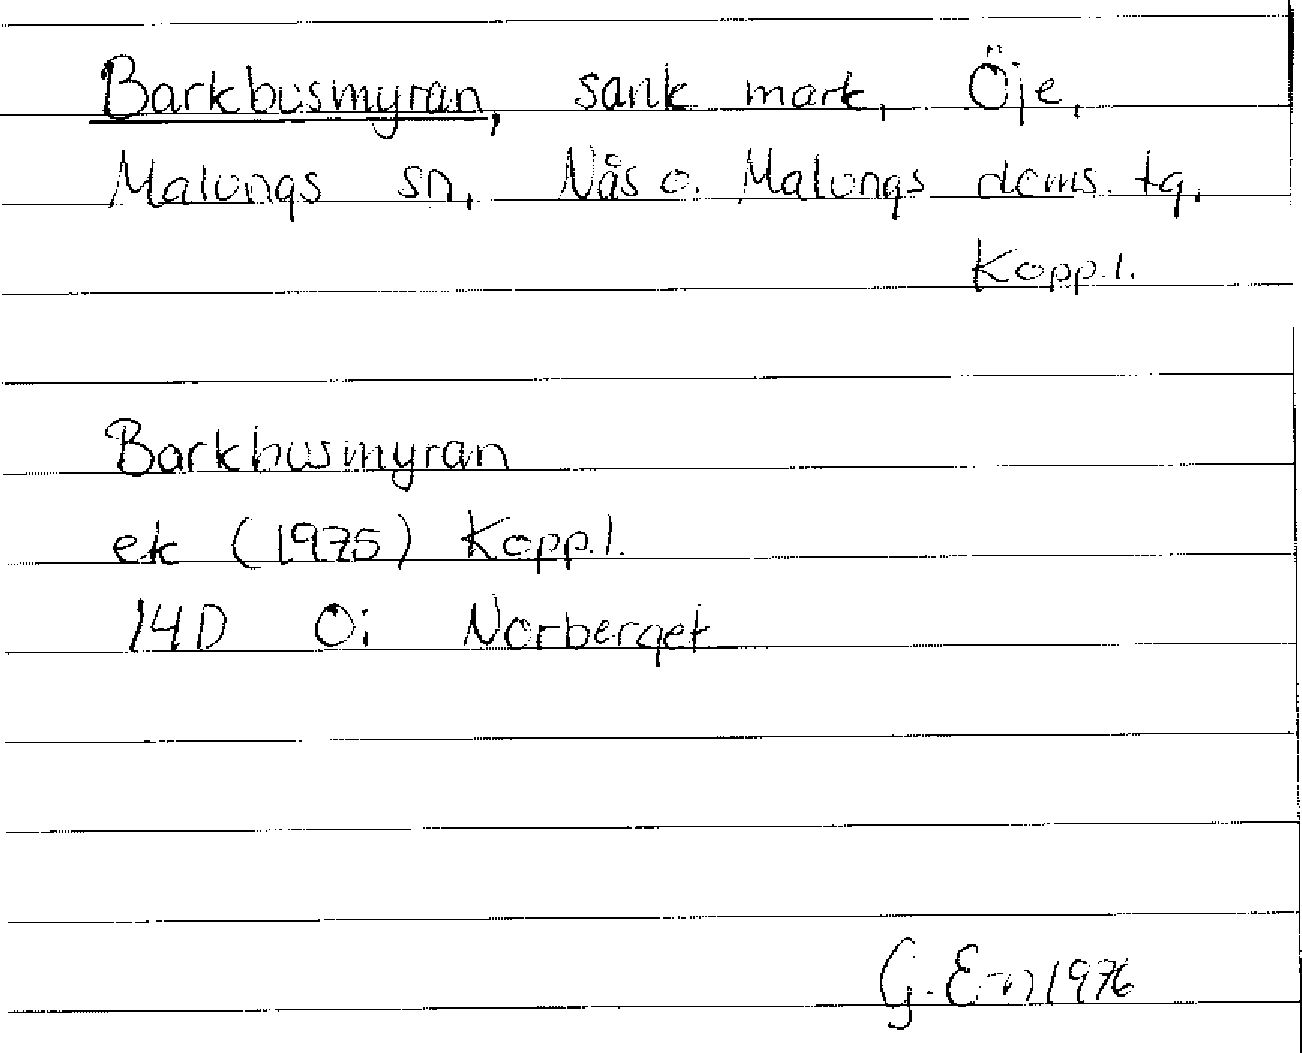 Barkbusmyran, sank mark, Öje,
Malungs sn, Nås o. Malungs doms. tg,
Kopp. l.
Barkbusmyran
ek (1975) Kopp. l.
14D Oi Norberget
G. E-n 1976